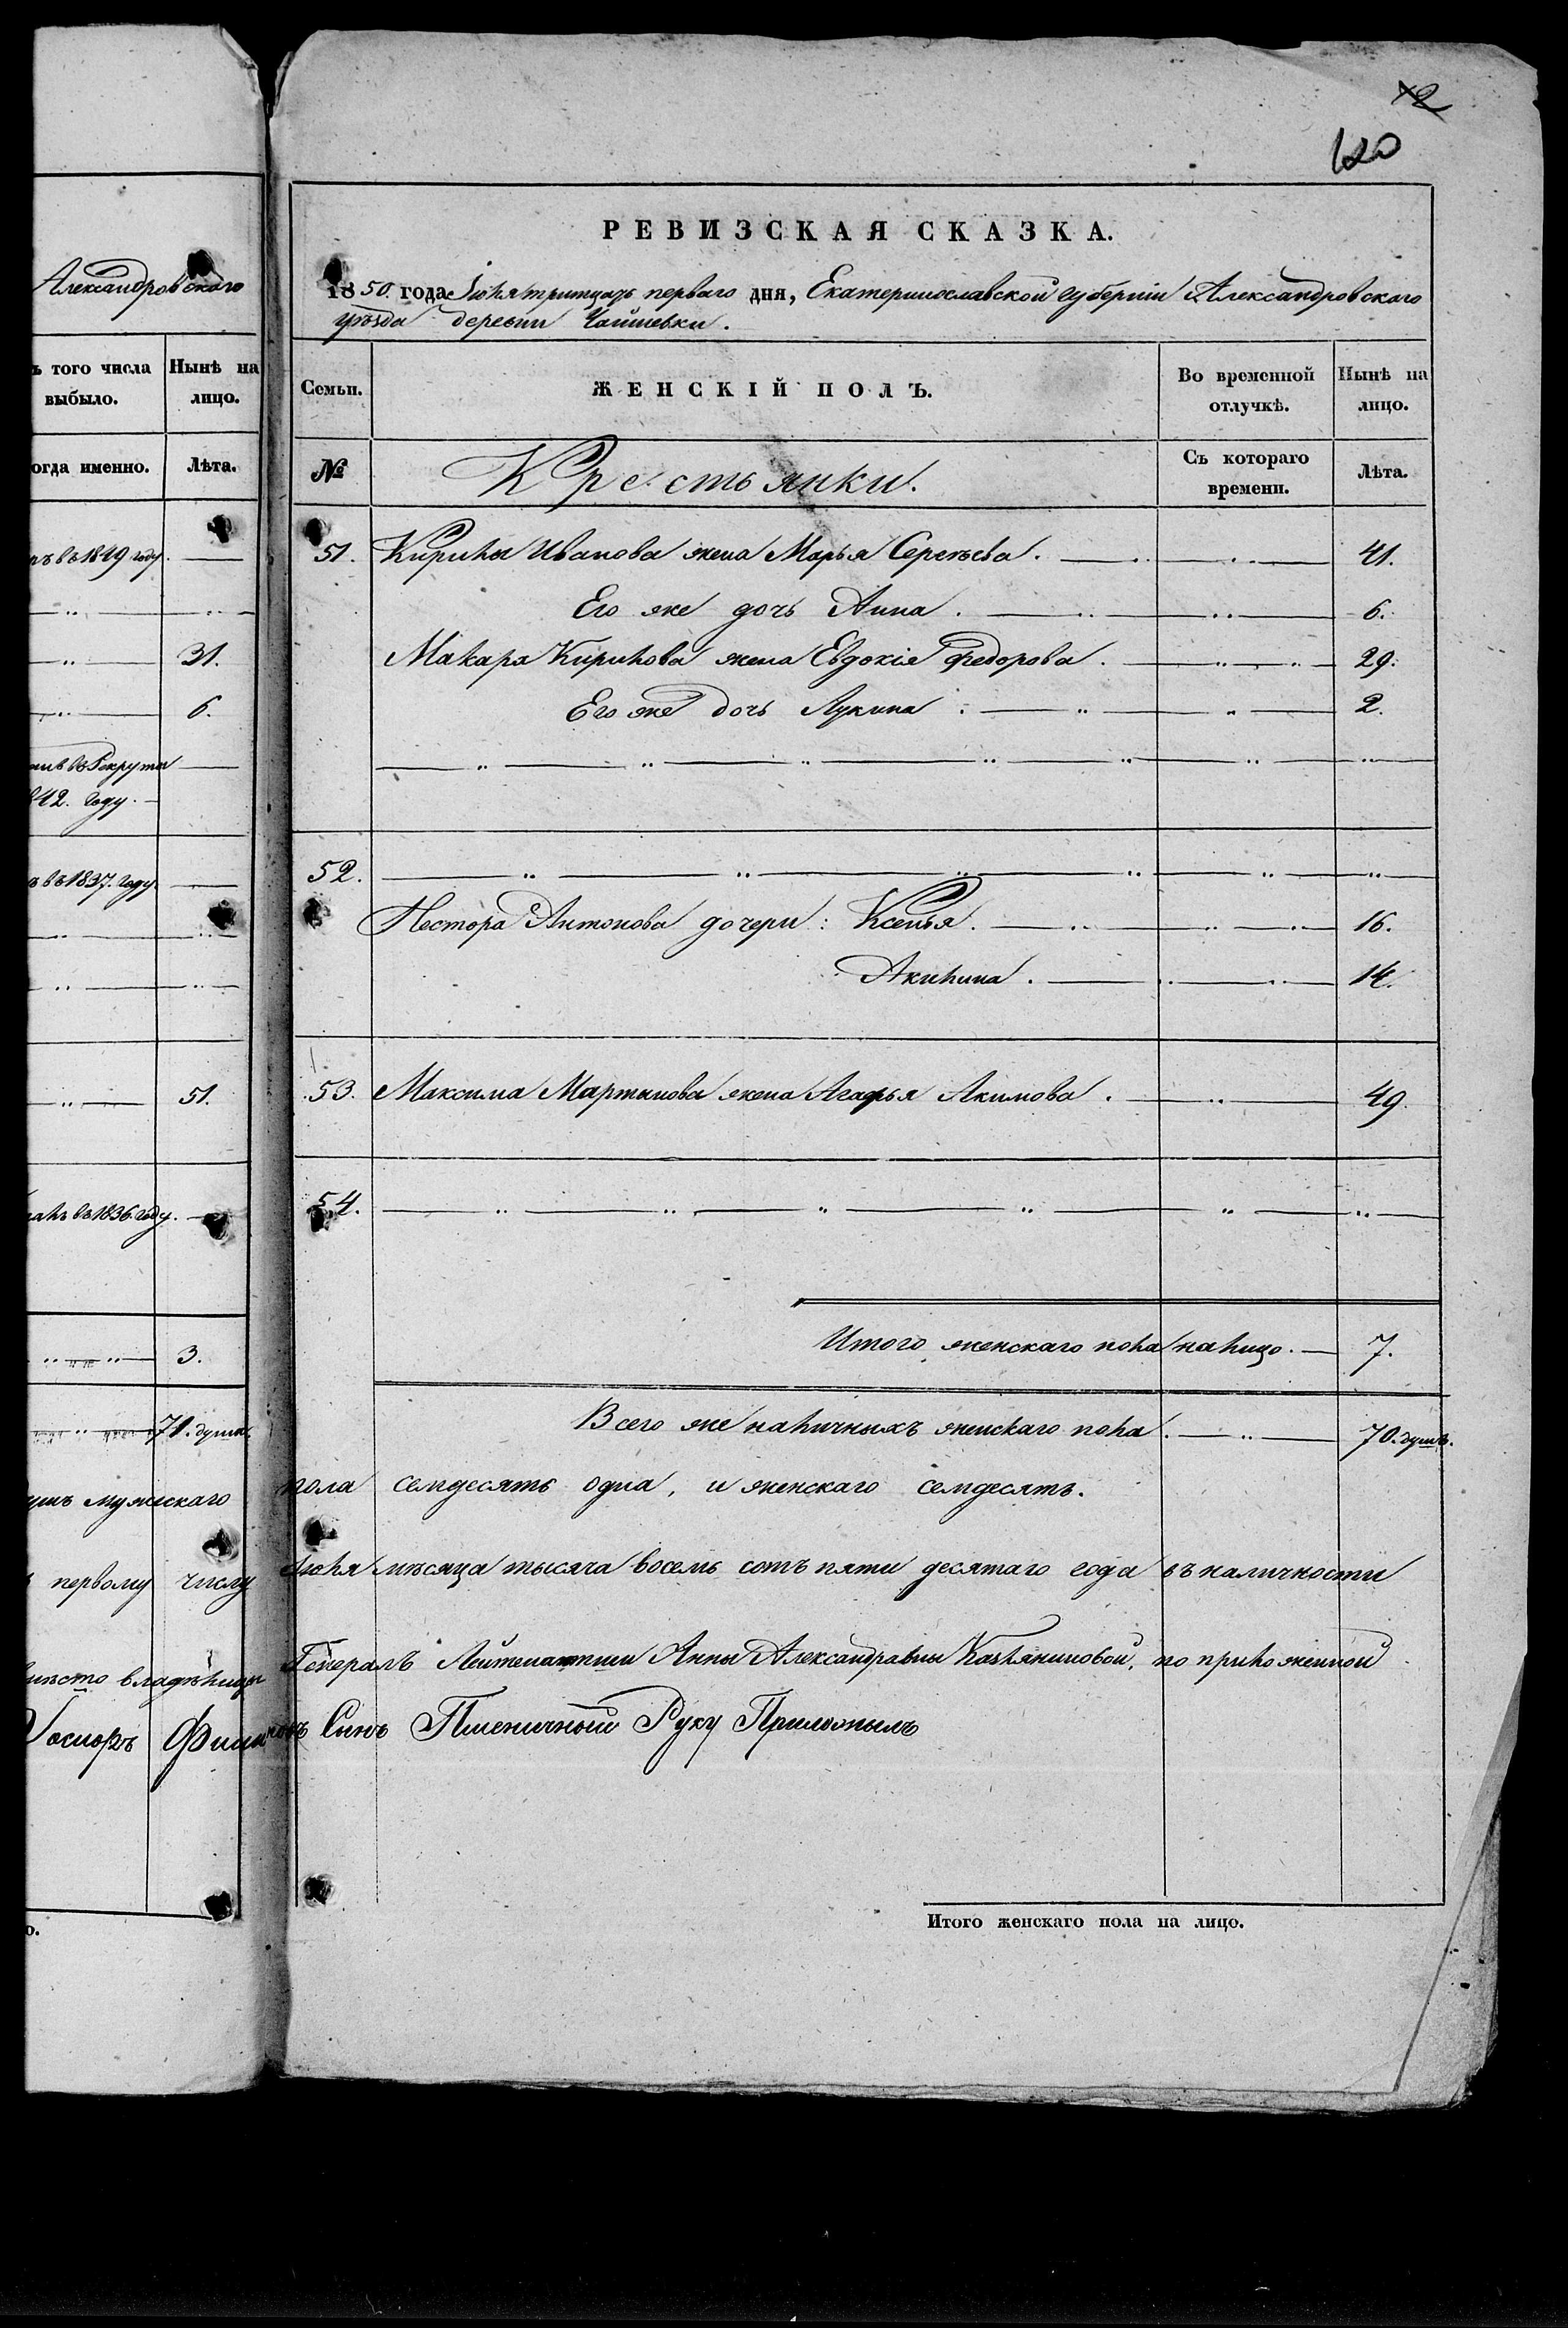 Александровскаго
ъ того числа выбыло.
Нынѣ на лицо.
огда именно.
Лѣта.
въ 1849 году.
31.
6.
въ Рекруты
842. году.
въ 1837. году.
51.
въ 1836 году.
3.
71. душъ.
120
РЕВИЗСКАЯ СКАЗКА.
1850. года Іюля тритцать перваго дня, Екатеринославской губерніи Александровскаго
уѣзда деревни
Семьи.
ЖЕНСКІЙ ПОЛЪ.
Во временной отлучкѣ.
Нынѣ на лицо.
№
Крестьянки.
Съ котораго времени.
Лѣта.
51. Кирилы Иванова жена Марья Сергѣева. 41.
Его же дочь Анна. 6.
Макара Кирилова жена Евдокія Федорова. 29.
Его же дочь Лукина. 2.
52.
Нестора Антонова дочери: Ксенья. 16.
Акилина. 14.
53. Максима Мартынова жена Агафья Акимова. 49.
54.
Итого женскаго пола на лицо. 7.
Всего же наличныхъ женскаго пола. 70. душъ.
ушъ мужескаго пола семдесятъ одна, и женскаго семдесятъ.
первому числу Іюля мѣсяца тысяча восемь сотъ пяти десятаго года въ наличности
вмѣсто владѣлицы Генералъ Лейтенантши Анны Александравны по приложенной
Сынъ Пшеничный Руку Приложылъ
Итого женскаго пола на лицо.